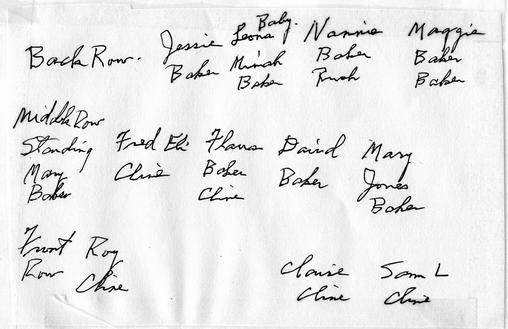 Baby.
Back Row. Jessie Leona Nannie Maggie
Baker Minah Baker Baker
Baker Rush Baker
Middle Row
Standing Fred Eli David Mary
Mary Cline Baker Baker Jones
Baker Cline Baker
Front Roy
Row Cline Claire Sam L
Cline Cline